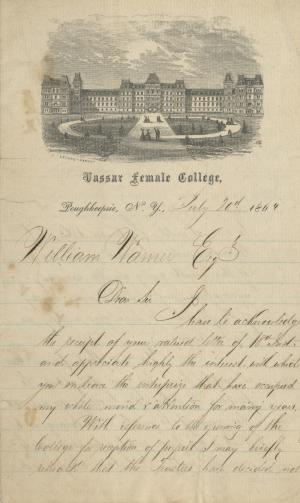 Vassar Female College,
Poughkeepsie, N. Y. July 20th 1864
William Warner Esq
Dear Sir I
have to acknowledge
the receipt of your valued
and appreciate highly the interest with which
you the enterprize that have occupied
my whole mind & attention for many years.
With reference to the opening of the
College for reception of pupils I may briefly
remark that the Trustees have decided not